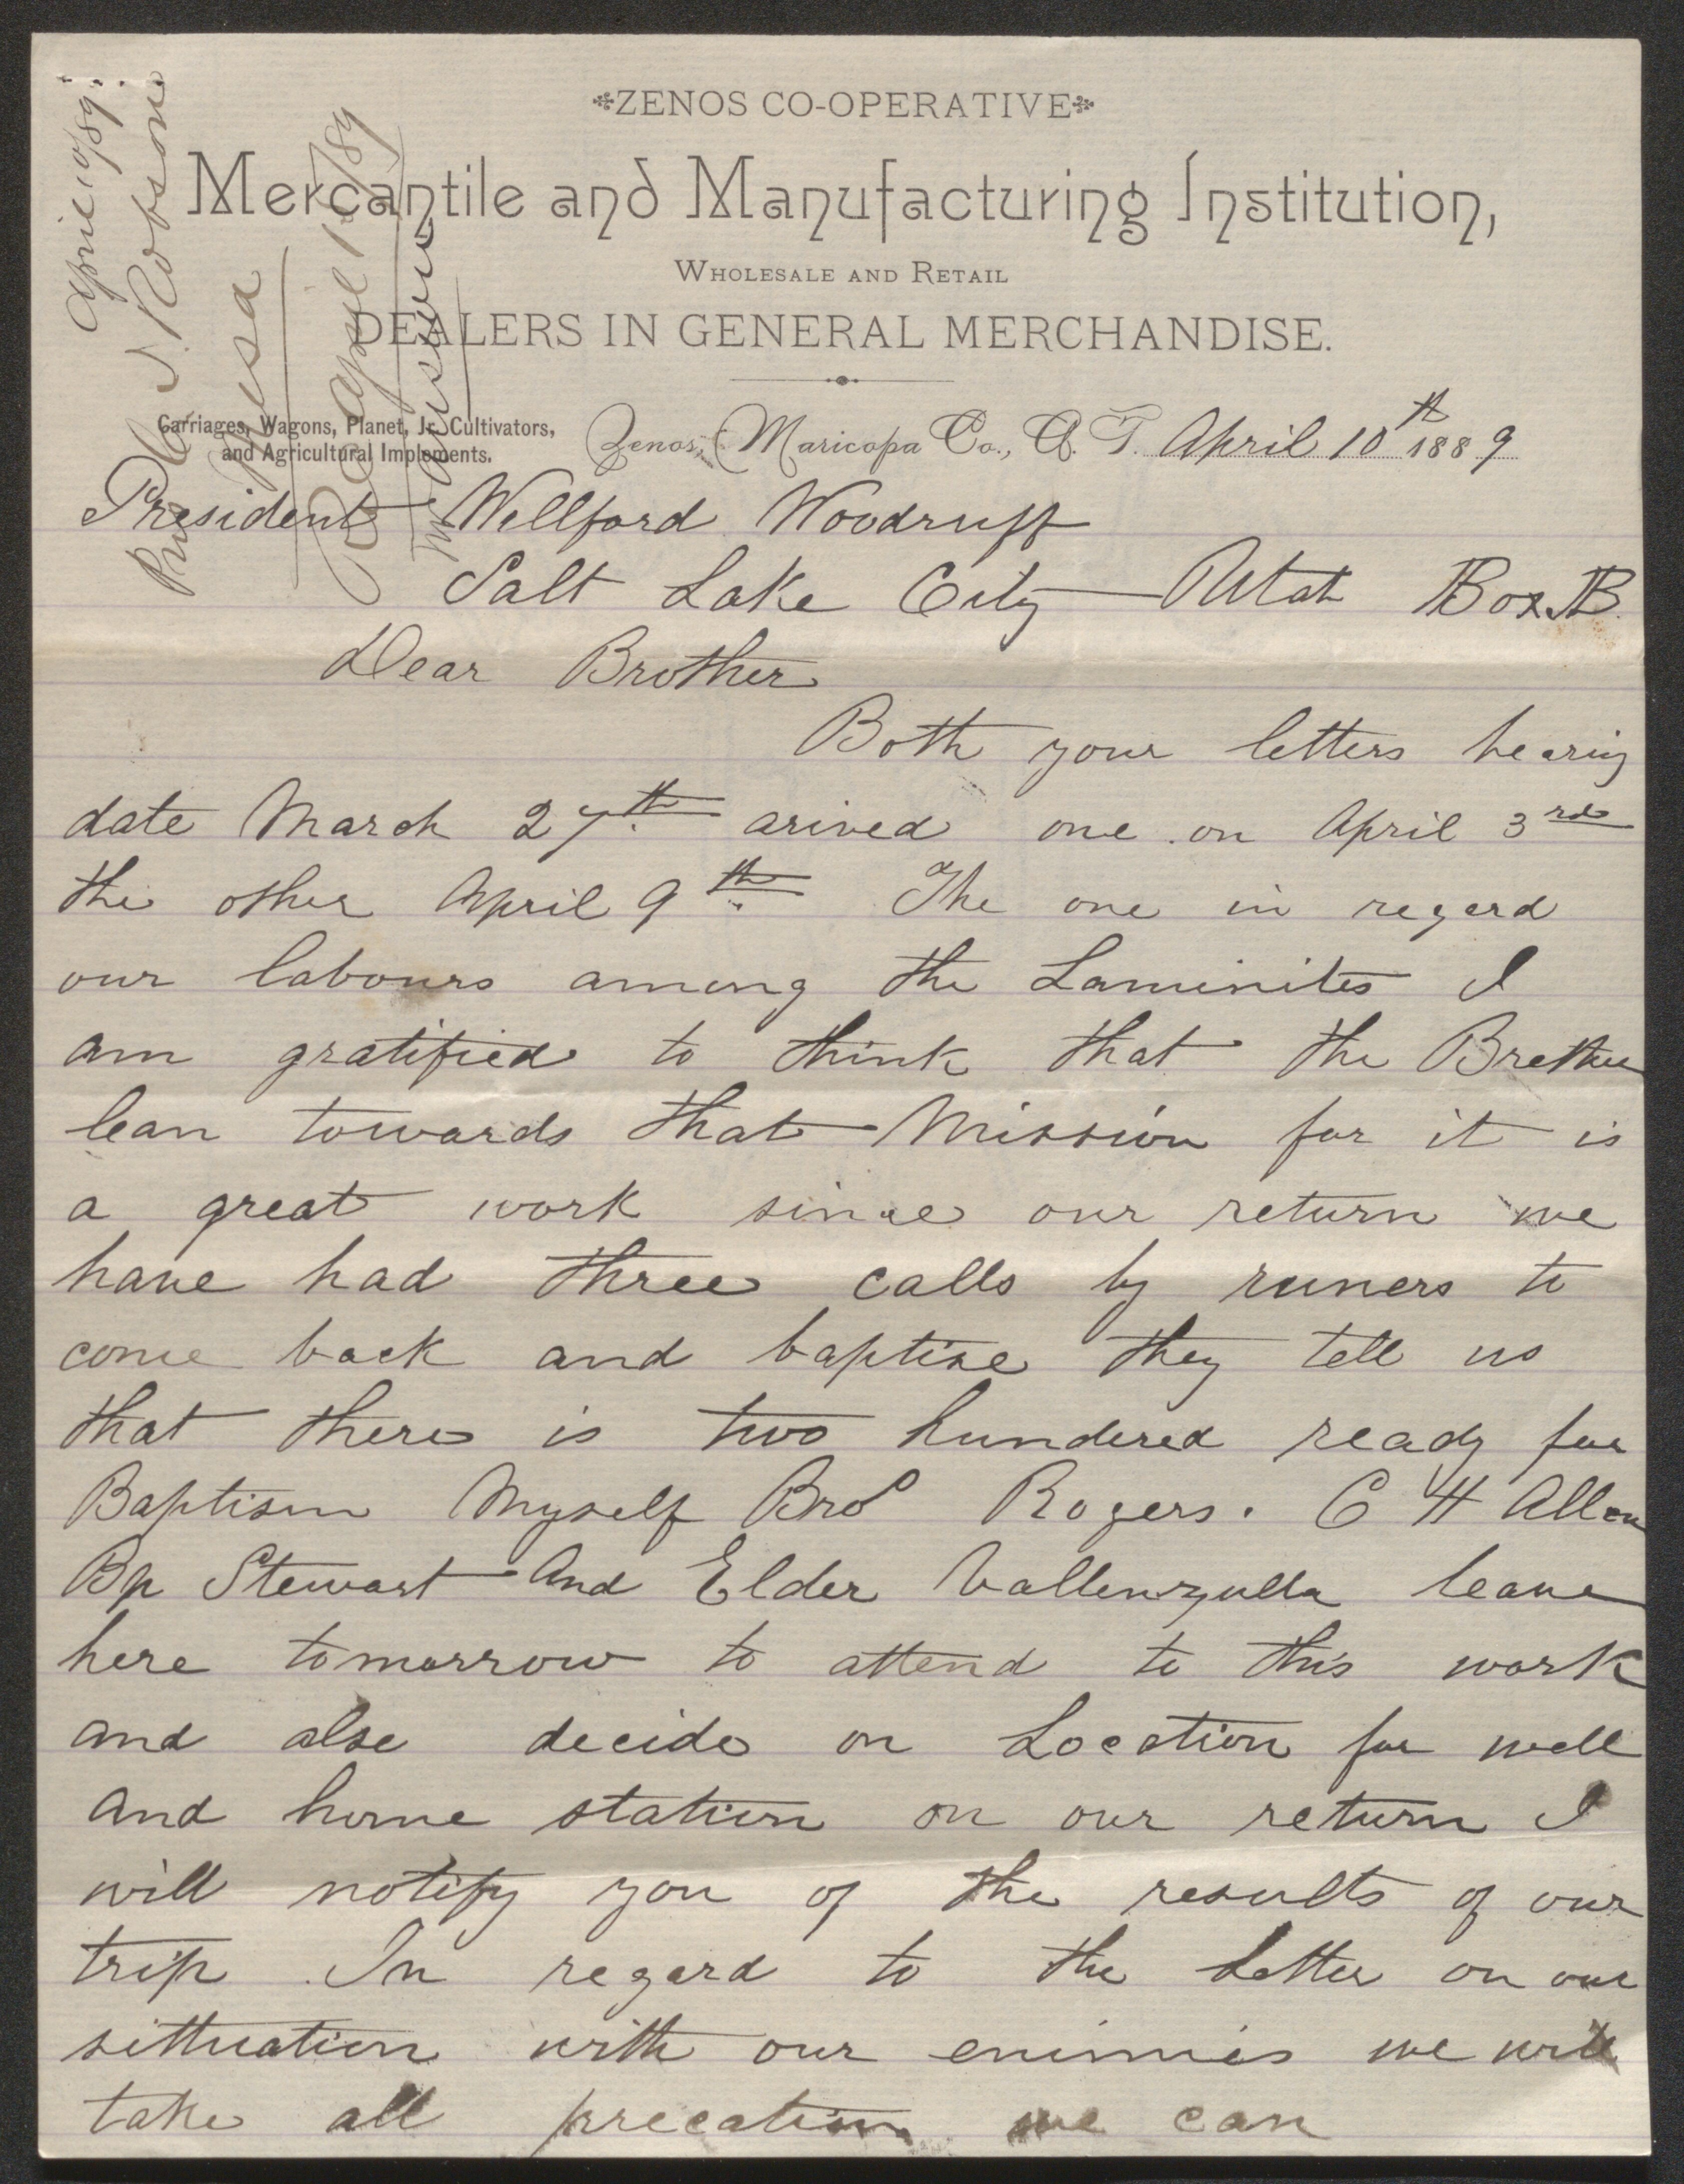 ❈ZENOS CO-OPERATIVE❈
Mercantile and Manufacturing Institution,
WHOLESALE AND RETAIL
DEALERS IN GENERAL MERCHANDISE.
Carriages, Wagons, Planet, Jr. Cultivators,
and Agricultural Implements.
Zenos, Maricopa Co., A. T. April 10th 1889
April 10/89.
C I. Robson
Mesa
Rec April 1/89
President Wellford Woodruff
Salt Lake City Utah Box B.
Dear Brother
Both your letters bearing
date March 27th arived one on April 3rd
the other April 9th The one in regard
our labours among the Laminites I
am gratified to think that the Brethren
lean towards that Mission for it is
a great work since our return we
have had three calls by runers to
come back and baptise they tell us
that there is two hundered ready for
Baptism Myself Bro Rogers. C H Allen
Bp Stewart And Elder Vallenzulla leave
here tomorrow to attend to this work
and also decide on Location for well
and home station on our return I
will notify you of the results of our
trip In regard to the Letter on our
sittuation with our enimies we will
take all precation we can